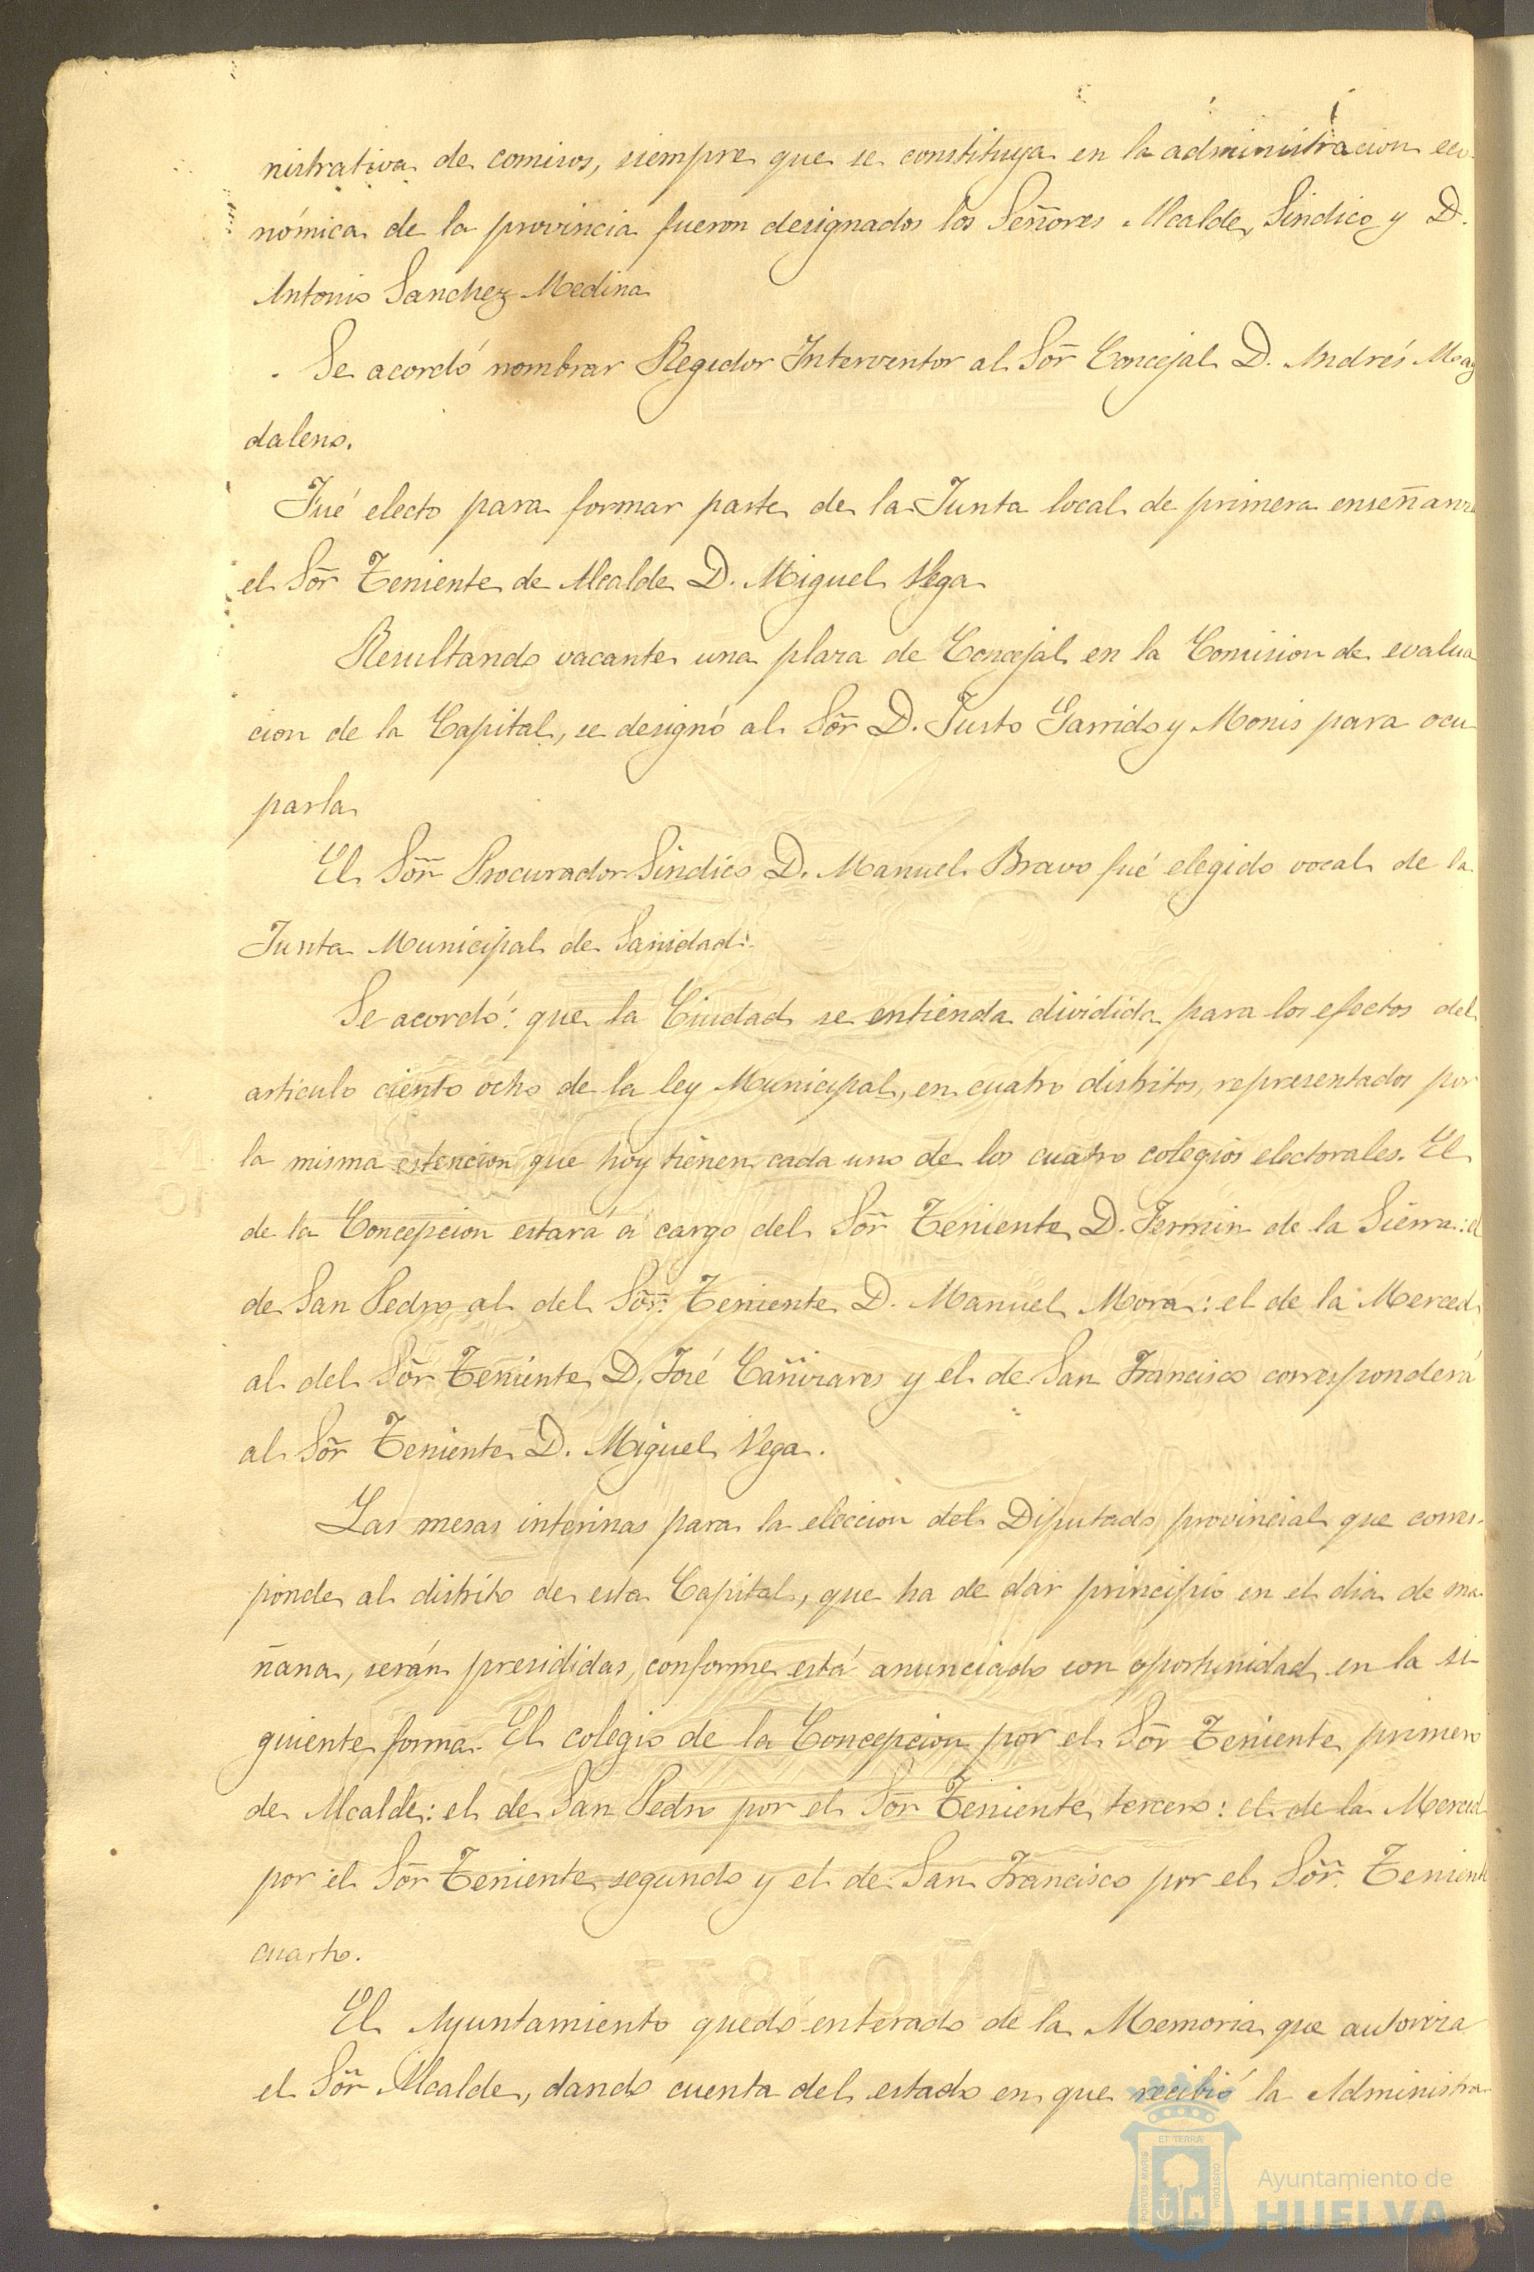 nistrativa de comisos, siempre que se constituya en la administracion eco-
nómica de la provincia fueron designados los Señores Alcalde, Sindico y D.
Antonio Sanchez Medina
Se acordó nombrar Regidor Interventor al Sõr Concejal D. Andrés Mag
daleno.
Fué electo para formar parte de la Junta local de primera enseñanza
el Sõr Teniente de Alcalde D. Miguel Vega
Resultando vacante una plaza de Concejal en la Comision de evalua
cion de la Capital, se designó al Sõr D. Justo Garrido y Monis para ocu
parla
El Sõr Procurador Sindico D. Manuel Bravo fué elegido vocal de la
Junta Municipal de Sanidad.
Se acordó: que la Ciudad se entienda dividida para los efectos del
articulo ciento ocho de la ley Municipal, en cuatro distritos, representados por
la misma estencion que hoy tienen cada uno de los cuatro colegios electorales. El
de la Concepcion estará á cargo del Sõr Teniente D. Fermin de la Sierra: el
de San Pedro al del Sõr. Teniente D. Manuel Mora: el de la Merced
al del Sõr Teniente D. José Cañizares y el de San Francisco corresponderá
al Sõr Teniente D. Miguel Vega.
Las mesas interinas para la eleccion del Diputado provincial que corres-
ponde al distrito de esta Capital, que ha de dar principio en el dia de ma-
ñana, serán presididas, conforme está anunciado con oportunidad en la si-
guiente forma. El colegio de la Concepcion por el Sõr Teniente primero
de Alcalde: el de San Pedro por el Sõr Teniente tercero: el de la Merced
por el Sõr Teniente segundo y el de San Francisco por el Sõr. Teniente
cuarto.
El Ayuntamiento quedó enterado de la Memoria que autoriza
el Sõr Alcalde, dando cuenta del estado en que recibió la Administra-
AÑO 1877
PORTUS MARIS
ET TERRÆ
CUSTODIA
Ayuntamiento de
HUELVA